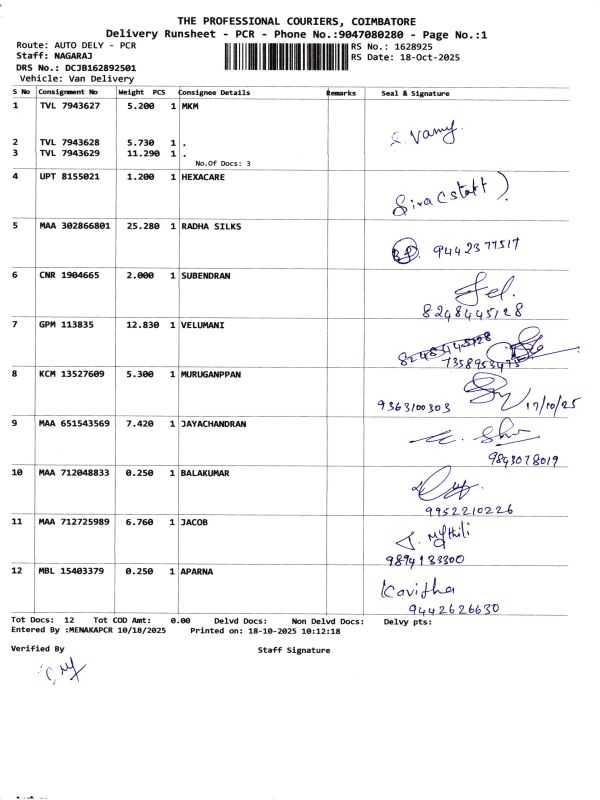 THE PROFESSIONAL COURIERS, COIMBATORE
Delivery Runsheet - PCR - Phone No.:9047080280 - Page No.:1
Route: AUTO DELY - PCR RS No.: 1628925
Staff: NAGARAJ RS Date: 18-Oct-2025
DRS No.: DCJB162892501
Vehicle: Van Delivery
S No Consignment No Weight PCS Consignee Details Remarks Seal & Signature
1 TVL 7943627 5.200 1 MKM
S. Vamy.
2 TVL 7943628 5.730 1 .
3 TVL 7943629 11.290 1 .
No.Of Docs: 3
4 UPT 8155021 1.200 1 HEXACARE
Siva (staff)
5 MAA 302866801 25.280 1 RADHA SILKS
9442377517
6 CNR 1904665 2.000 1 SUBENDRAN
8248445128
7 GPM 113835 12.830 1 VELUMANI
7358953475
8 KCM 13527609 5.300 1 MURUGANPPAN
9363100303 17/10/25
9 MAA 651543569 7.420 1 JAYACHANDRAN
9843078019
10 MAA 712048833 0.250 1 BALAKUMAR
9952210226
11 MAA 712725989 6.760 1 JACOB
J. Mythili
9894133300
12 MBL 15403379 0.250 1 APARNA
Kavitha
9442626630
Tot Docs: 12 Tot COD Amt: 0.00 Delvd Docs: Non Delvd Docs: Delvy pts:
Entered By :MENAKAPCR 10/18/2025 Printed on: 18-10-2025 10:12:18
Verified By Staff Signature